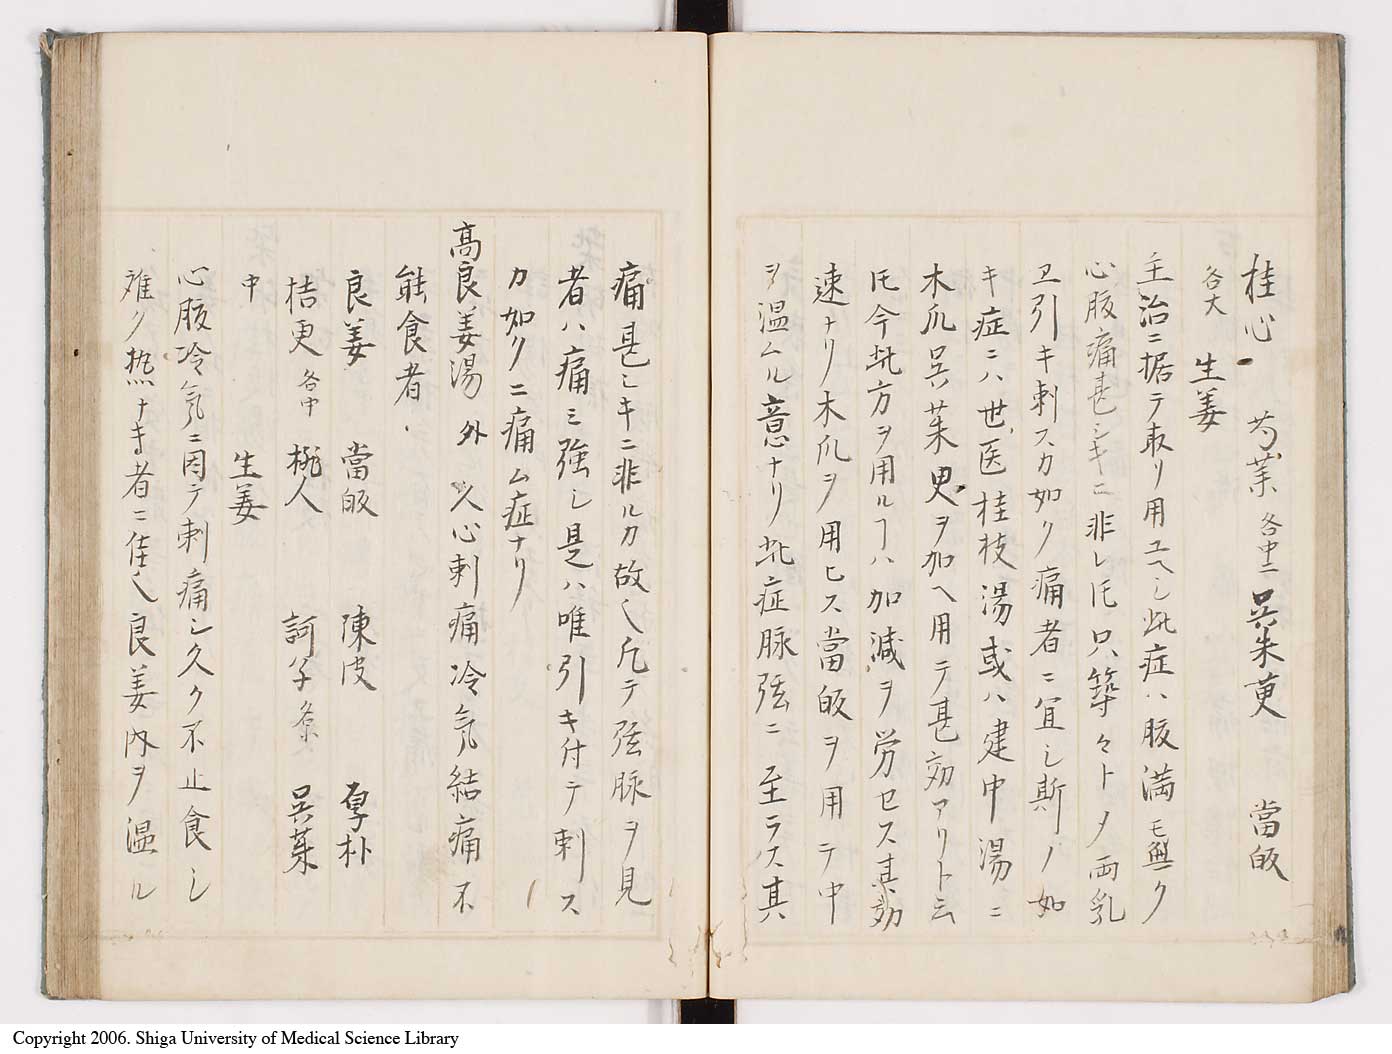 桂心 芍薬 各中 呉朱萸 當皈
各大 生姜
主治ニ据テ取リ用ユヘシ此症ハ腹満モ無ク
心腹痛甚シキニ非レ𪜈只築々トメ両乳
ヱ引キ刺スカ如ク痛者ニ宜シ斯ノ如
キ症ニハ世医桂枝湯或ハ建中湯ニ
木瓜呉茱萸ヲ加ヘ用テ甚効アリト云
𪜈今此方ヲ用ルヿハ加減ヲ労セス其効
速ナリ木瓜ヲ用ヒス當皈ヲ用テ中
ヲ温ムル意ナリ此症脉弦ニ至ラス其
痛甚シキニ非ルカ故也凡テ弦脉ヲ見
者ハ痛ミ強シ是ハ唯引キ付テ刺ス
カ如クニ痛ム症ナリ
高良姜湯 外 久心刺痛冷氣結痛不
能食者
良姜 當皈 陳皮 厚朴
桔更 各中 桃人 訶子 各小 呉茱
中 生姜
心腹冷氣ニ因テ刺痛シ久ク不止食シ
難ク㷔ナキ者ニ佳也良姜内ヲ温ル
Copyright 2006. Shiga University of Medical Science Library